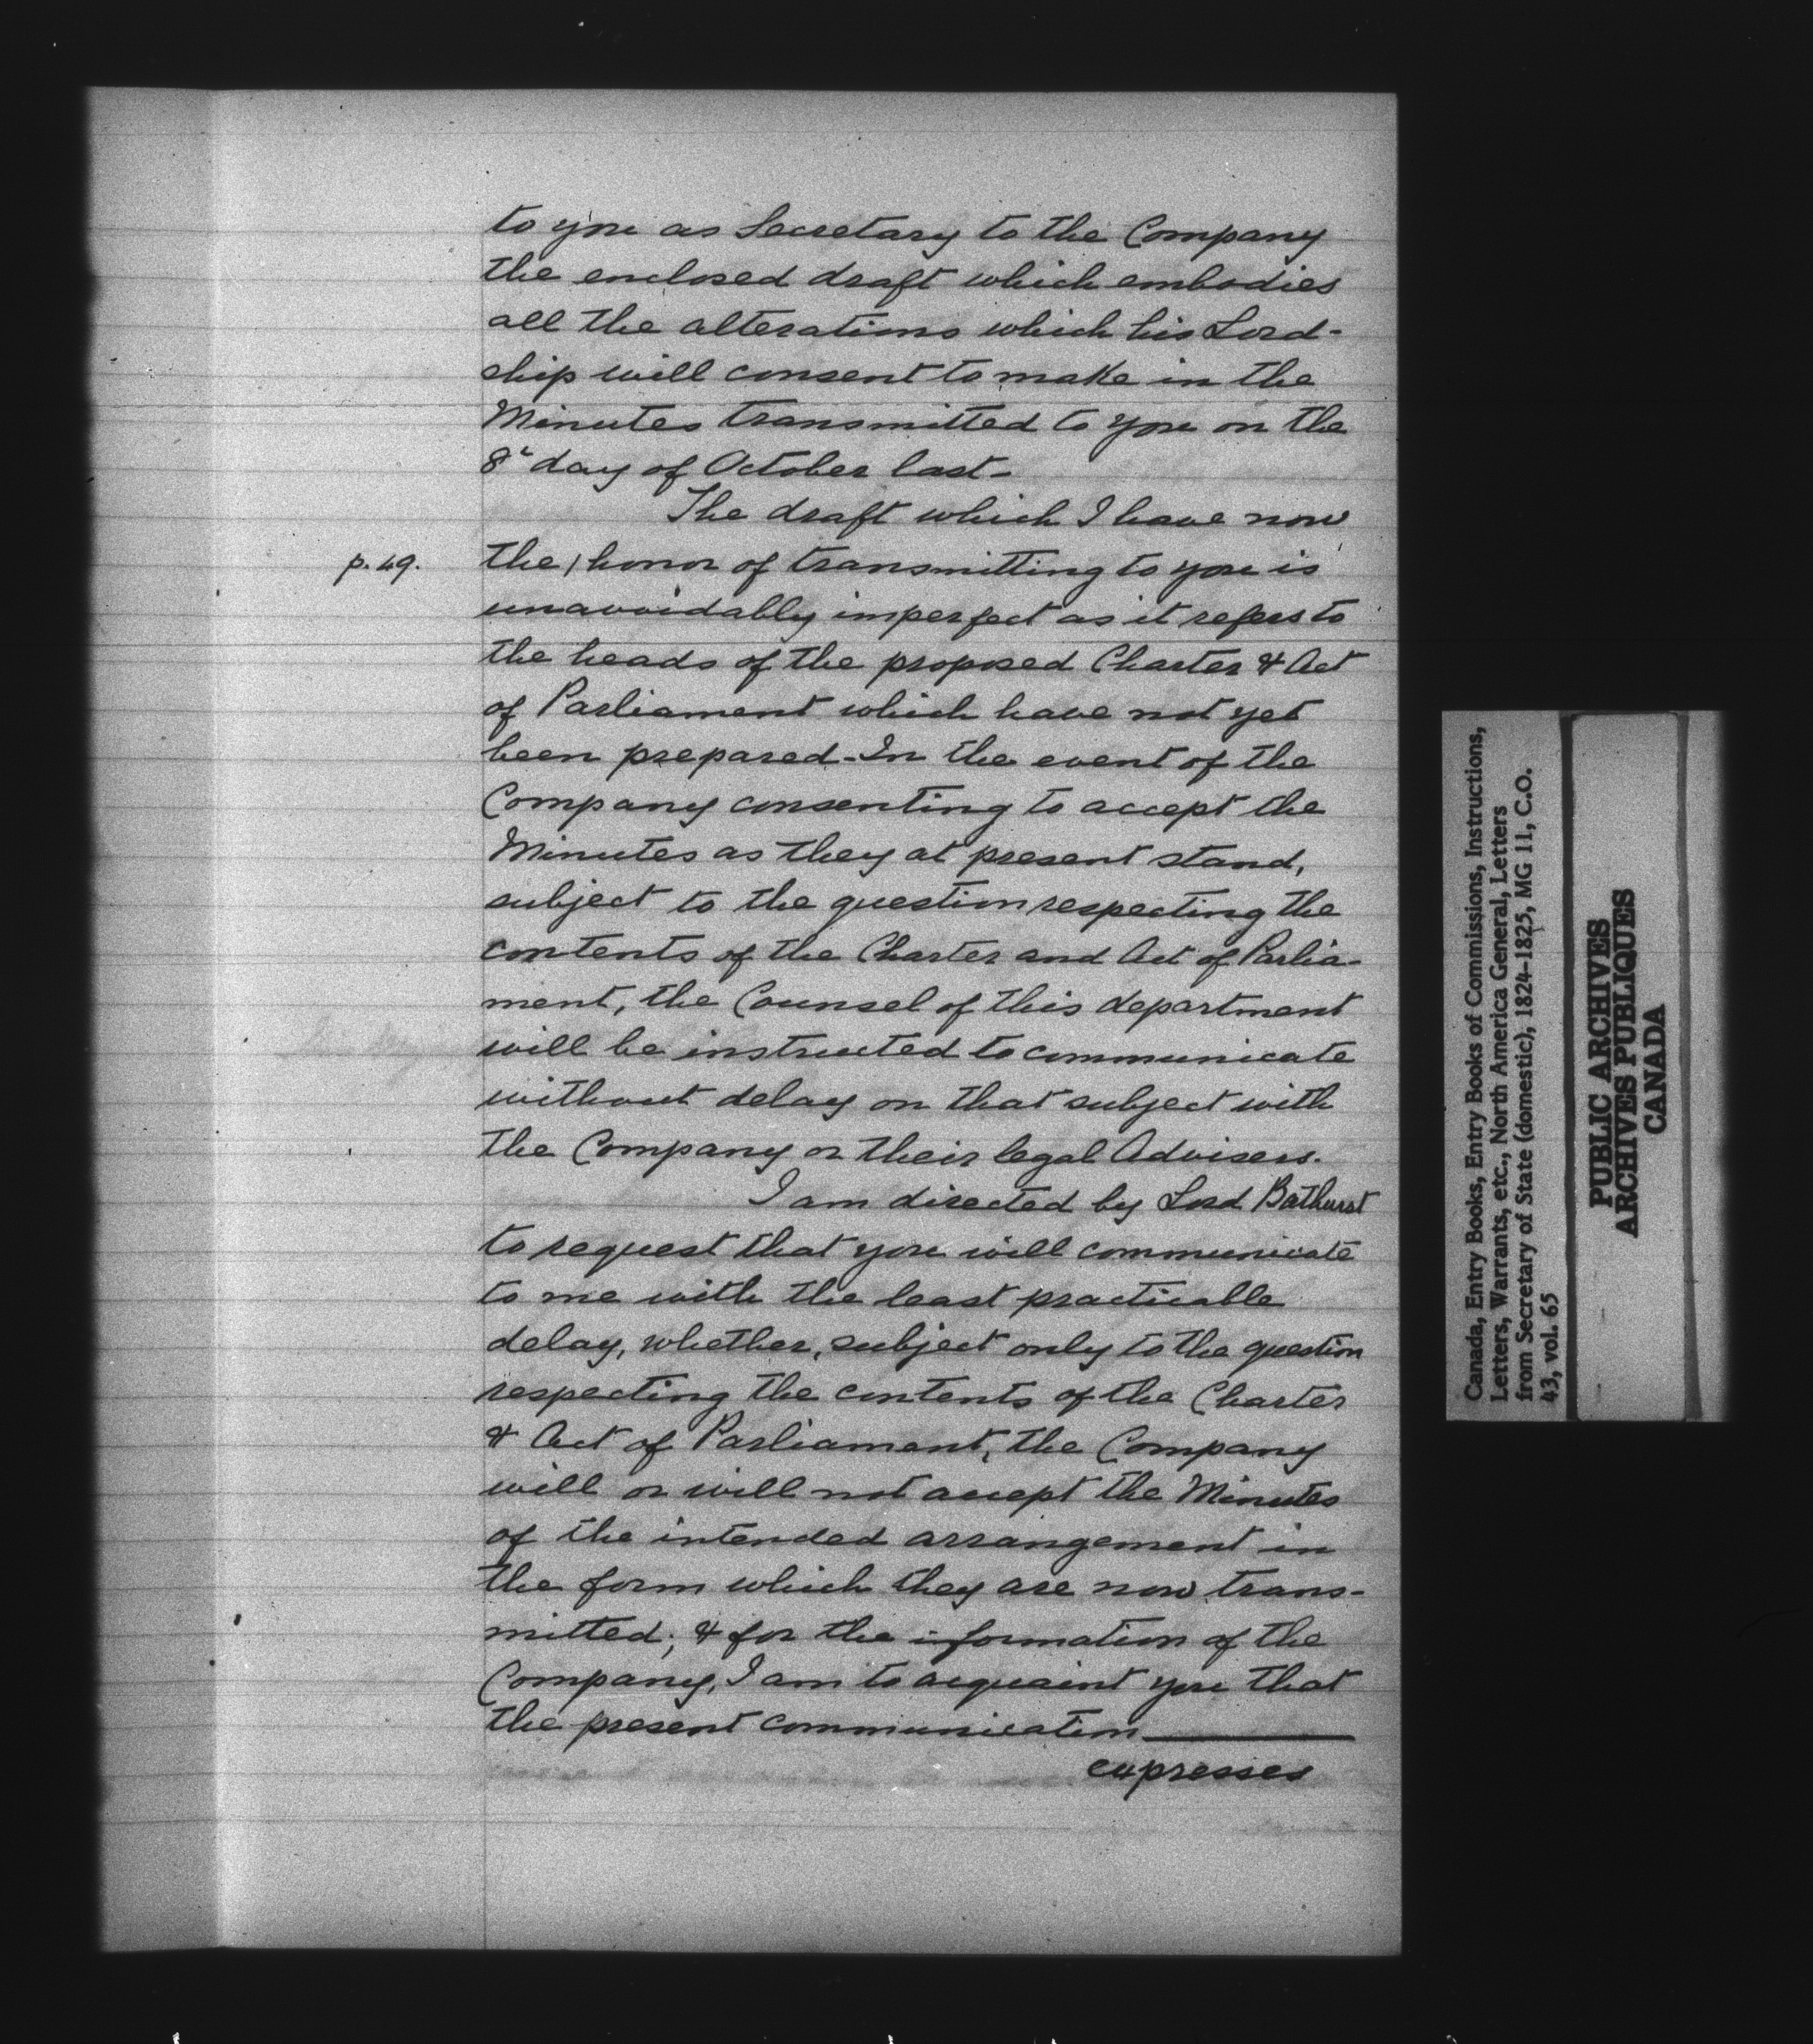 to you as Secretary to the Company
the enclosed draft which embodies
all the alterations which his Lord-
ship will consent to make in the
Minutes transmitted to you on the
8th day of October last-
The draft which I have now
p. 49. the / honor of transmitting to you is
unavoidably imperfect as it refers to
the heads of the proposed Charter & Act
of Parliament which have not yet
been prepared - In the event of the
Company consenting to accept the
Minutes as they at present stand,
subject to the question respecting the
contents of the Charter and Act of Parlia-
ment, the Counsel of this department
will be instructed to communicate
without delay on that subject with
the Company or their legal Advisers.
I am directed by Lord Bathurst
to request that you will communicate
to me with the least practicable
delay, whether, subject only to the question
respecting the contents of the Charter
& Act of Parliament, the Company
will or will not accept the Minutes
of the intended arrangement in
the form which they are now trans-
mitted; & for the information of the
Company, I am to acquaint you that
the present communication
expresses
Canada, Entry Books, Entry Books of Commissions, Instructions,
Letters, Warrants, etc., North America General, Letters
from Secretary of State (domestic), 1824-1825, MG 11, C.O.
43, vol. 65
PUBLIC ARCHIVES
ARCHIVES PUBLIQUES
CANADA